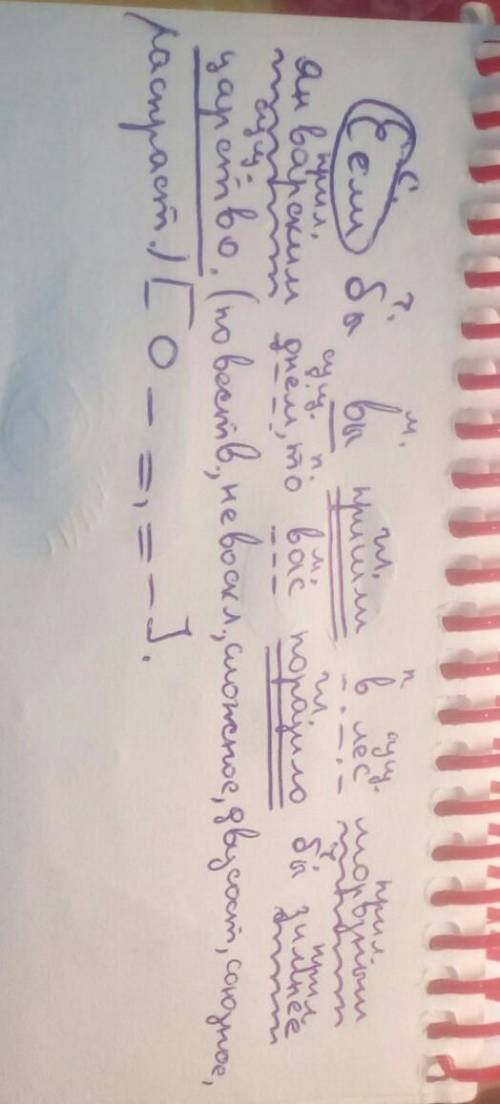 с. ч. м. гл. п. сущ. прил.
Если бы вы пришли в лес морозным
прил. сущ. п. м. гл. ч. прил.
январским днем, то вас поразило бы зимнее
сущ.
царство. (повеств., невоскл., сложное, двусост, союзное,
распраст.) [О – =, = –].